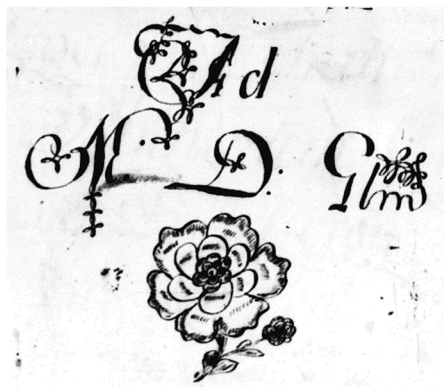 Ad
M. D. Glm